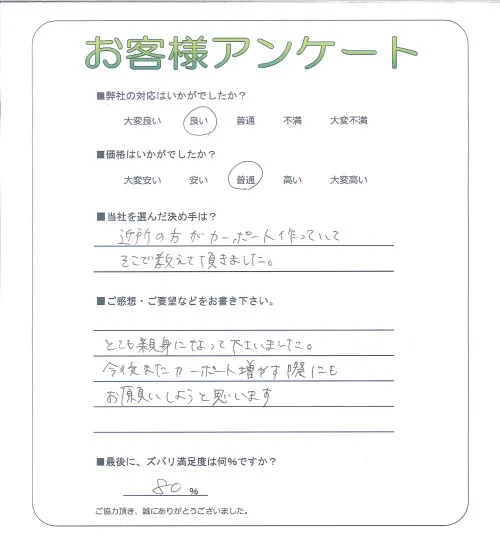 お客様アンケート
■弊社の対応はいかがでしたか？
大変良い 良い 普通 不満 大変不満
■価格はいかがでしたか？
大変安い 安い 普通 高い 大変高い
■当社を選んだ決め手は？
近所の方がカーポート作っていて
そこで教えて頂きました。
■ご感想・ご要望などをお書き下さい。
とても親身になって下さいました。
今後またカーポート増やす際にも
お願いしようと思います
■最後に、ズバリ満足度は何％ですか？
80 ％
ご協力頂き、誠にありがとうございました。